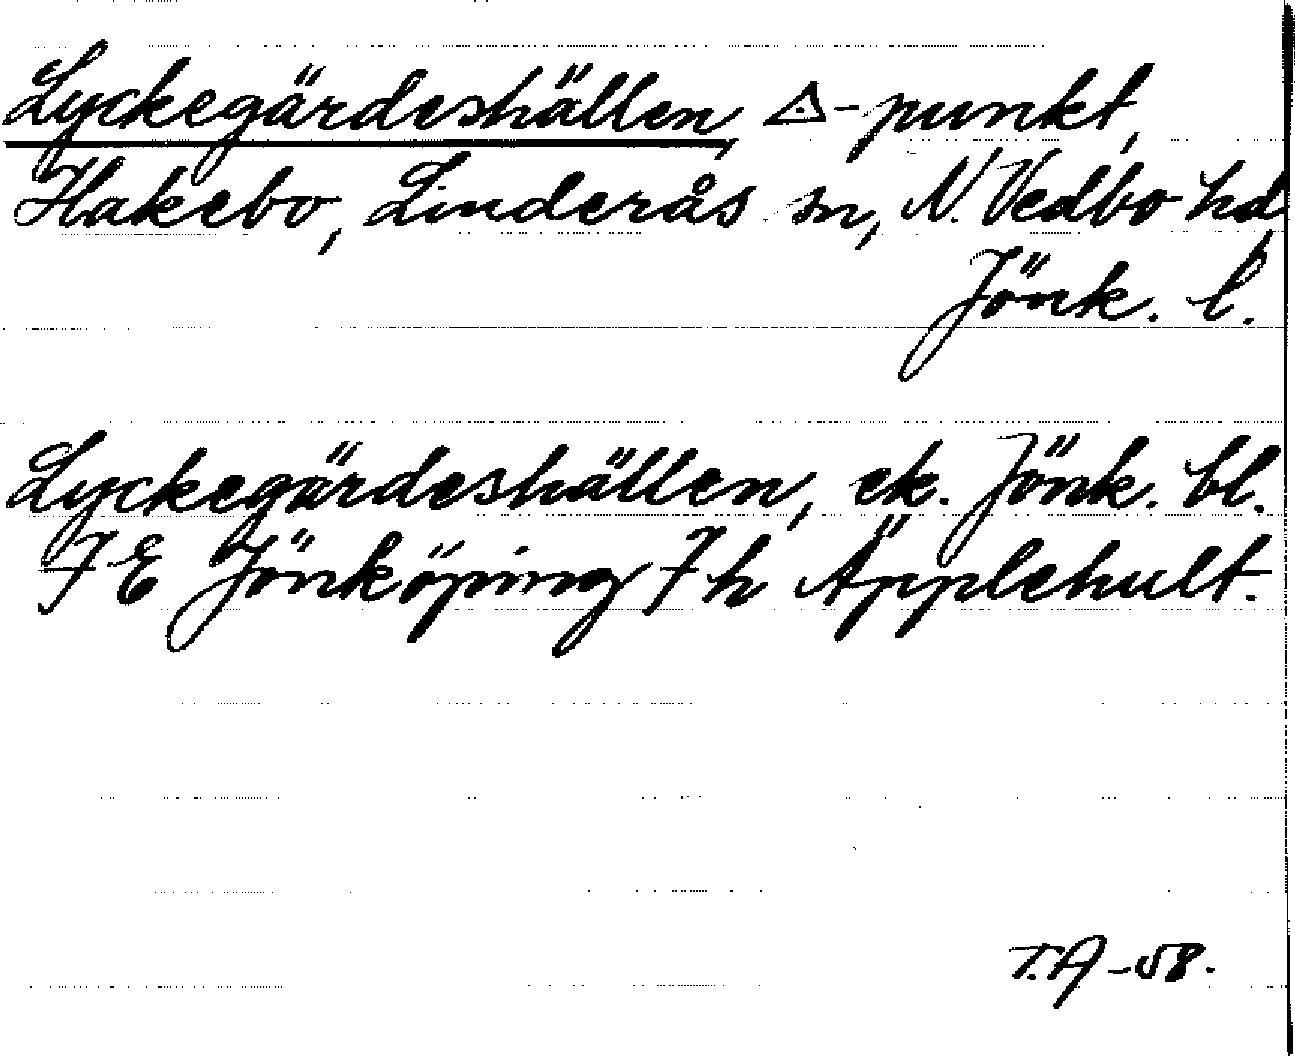 Lyckegärdeshällen, △-punkt,
Hakebo, Linderås sn, N. Vedbo hd,
Jönk. l.
Lyckegärdeshällen, ek. Jönk. bl.
7 E Jönköping 7 h Äpplehult.
T.A -58.